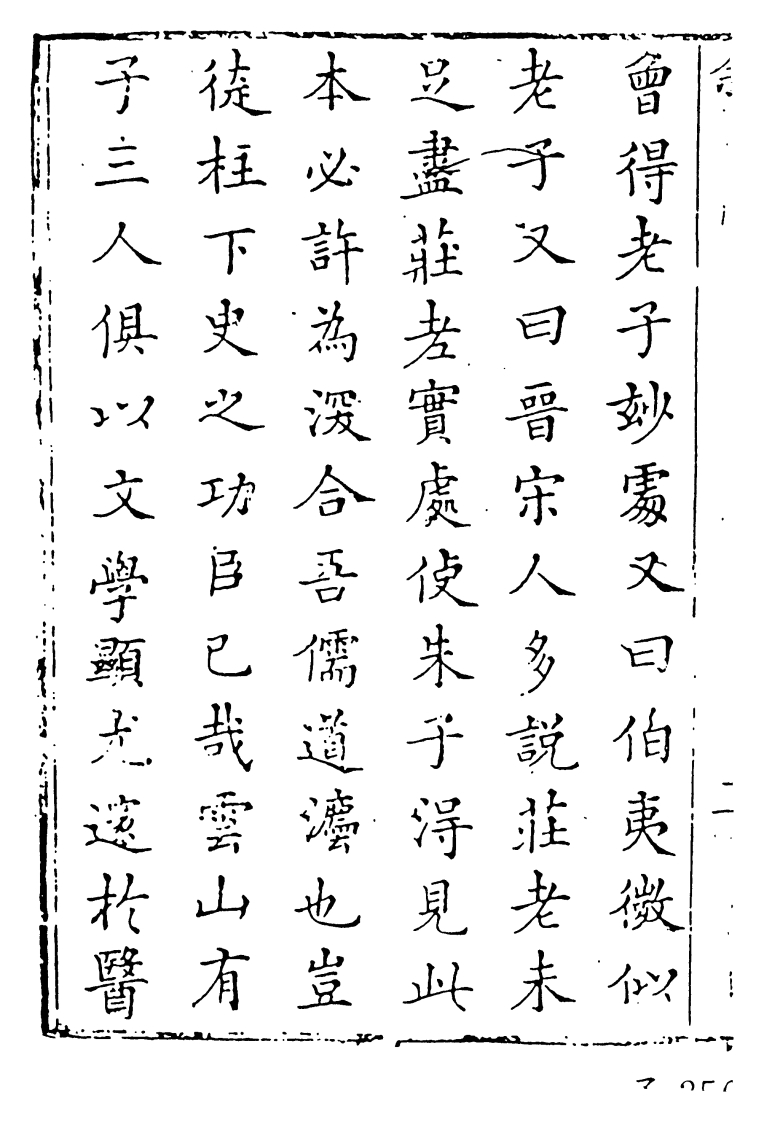 會得老子妙處又曰伯夷微似
老子又曰晉宋人多説莊老未
足盡莊老實處使朱子得見此
本必許為深合吾儒道灋也豈
徒柱下史之功臣已哉雲山有
子三人俱以文學顯尤邃於醫